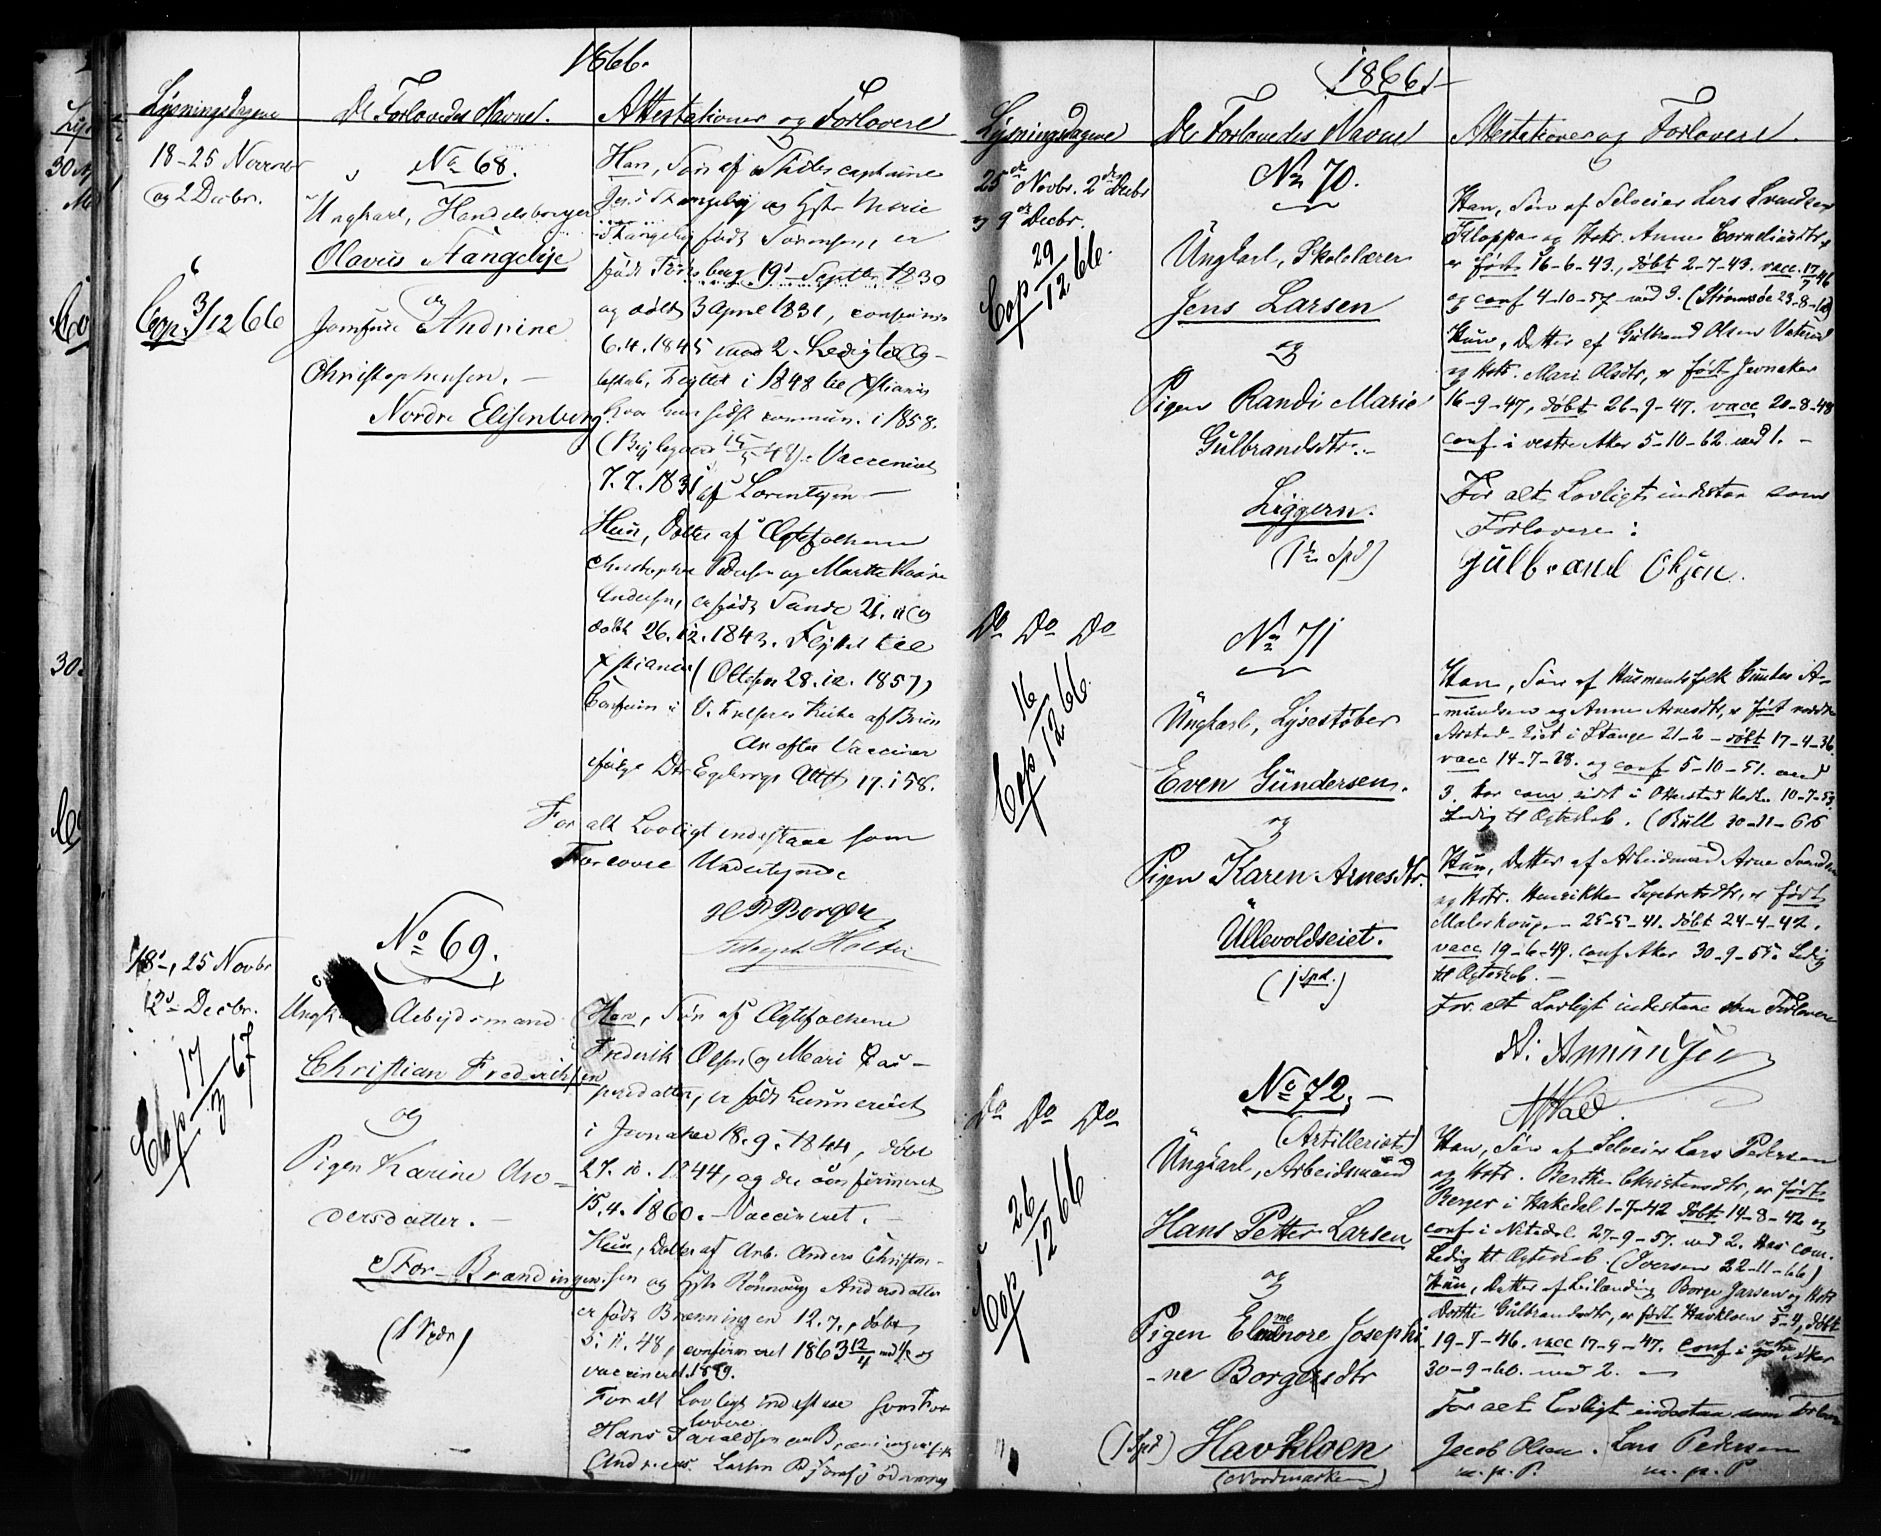 1866.
Lysningsdagene
De Forlovedes Navne.
Attestationer og Forlovere
18-25 November
og 2 Decbr.
Cop. 3/12 66
No 68.
Ungkarl, Handelsborger
Olavus Stangebye
og
Jomfrue Andrine
Christophersen. -
Nordre Elisenberg
Han, Søn af Skibscaptaine
Jens Stangeby og Hstr Marie
Stangeby født Sørensen, er
født Tønsberg 19 Septbr 1830
og døbt 3 April 1831, confirm.
6.4.1845 med 2. Ledig til Æg-
teskab, flyttet i 1848 til Xstiania
hvor han sidst commun. i 1858.
Vaccineret
7.7.1831 af Lorentzen -
Hun, Datter af Ægtefolkene
Christopher Pedersen og Marthe Karine
Andersen, er født Sande 21. og
døbt 26.12.1843. Flyttet til
Xstiania (Ottesen 28.12.1857)
Confirm. i V. Frelsers Kirke af Bruun
Vaccineret
ifølge Dr. Egebergs Attst 17.1.58.
For alt Lovligt indestaae som
Forlovere Undertegnede
H P Borgen
No 69.
18-, 25 Novbr
2 Decbr.
Cop 17/3 67
Ungk Arbejdsmand
Christian Frederiksen
og
Pigen Karine An-
dersdatter. -
Stor-Brændingen
(1 Spdr)
Han, Søn af Ægtefolkene
Frederik Olsen og Mari Paa-
, er født Lunnereiet
i Jevnaker 18.9.1844, døbt
27.10.1844, og der confirmeret
15.4.1860. - Vaccineret. -
Hun, Datter af Arb. Anders Christen-
sen og Hstr Rønnaug Andersdatter
er født Brænningen 12.7., døbt
5.11.48, confirmeret 1863 12/4 med og
vaccineret 1859.
For alt Lovligt indestaae som For-
lovere
Hans Haraldsen
Andreas Larsen
1866.
Lysningsdagene
De Forlovedes Navne
Attestationer og Forlovere.
25de Novbr. 2den Decbr
og 9de Decbr.
Cop 29/12 66.
No 70.
Ungkarl, Skolelærer
Jens Larsen
og
Pigen Randi Marie
Gulbrandsdtr. -
Liggern.
(1/2 Spd)
Han, Søn af Selveier Lars Svendsen
Kloppa og Hstr. Anne Corneliusdtr,
er født 16-6-43, døbt 2-7-43. vacc 17/7 46
og conf 4-10-57 med 3. (Strømsøe 23-8-
Hun, Datter af Gulbrand Olsen
og Hstr. Mari Olsdtr, er født Jevnaker
16-9-47, døbt 26-9-47. vacc 20-8-48
conf i vestre Aker 5-10-62 med 1. -
For alt Lovligt indestaa som
Forlovere:
Gulbrand Olsen.
Do Do Do
Cop 16/12 66.
No 71
Ungkarl, Lysestøber
Even Gundersen.
og
Pigen Karen Arnesdtr.
Ullevoldseiet.
(1 Spd.)
Han, Søn af Husmandsfolk Gunder A-
mundsen og Anne Arnesdtr, er født nordre
Arstad eiet i Stange 21-2- døbt 17-4-36.
vacc 14-7-38. og conf 5-10-51. med
3. har com. sidst i Ottestad Kirke 10-7-53
Ledig til Ægteskab. (Bull 30-11-66
Hun, Datter af Arbeidsmand Arne Svendsen
og Hstr. Henrikke Ingebretsdtr, er født
Malerhaugen 25-5-41. døbt 24-4-42.
vacc 19-6-49. conf Aker 30-9-55. Ledig
til Ægteskab. -
For alt Lovligt indestaae som Forlovere
N: Amundsen
Do Do Do
Cop 26/12 66
No 72. -
(Artillerist)
Ungkarl, Arbeidsmand
Hans Petter Larsen
og
Pigen Elenore Josephi-
-ne Borgersdtr
(1 Spd) Havkloen
(Nordmarken)
Han, Søn af Selveier Lars Pedersen
og Hstr. Berthe Christensdtr, er født
Berger i Hakedal 1-7-42 døbt 14-8-42 og
conf i Nitedal 27-9-57. med 2. Har com.
Ledig til Ægteskab (Iversen 22-11-66)
Hun, Datter af Leilænding Borger Jansen og Hstr
Dorthe Gulbrandsdtr, er født Havkloen 5-4, døbt
19-7-46. vacc 17-9-47. Conf i vestre Aker
30-9-60. med 2. -
For alt Lovligt indestaa som Forlovere
Jacob Olsen. Lars Pedersen
m. p. P. m. p. P.